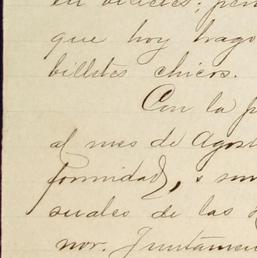 en billetes; per
que hoy hago
billetes chicos.
Con la p
al mes de Agost
formidad, s su
suales de las
nor. Juntamen